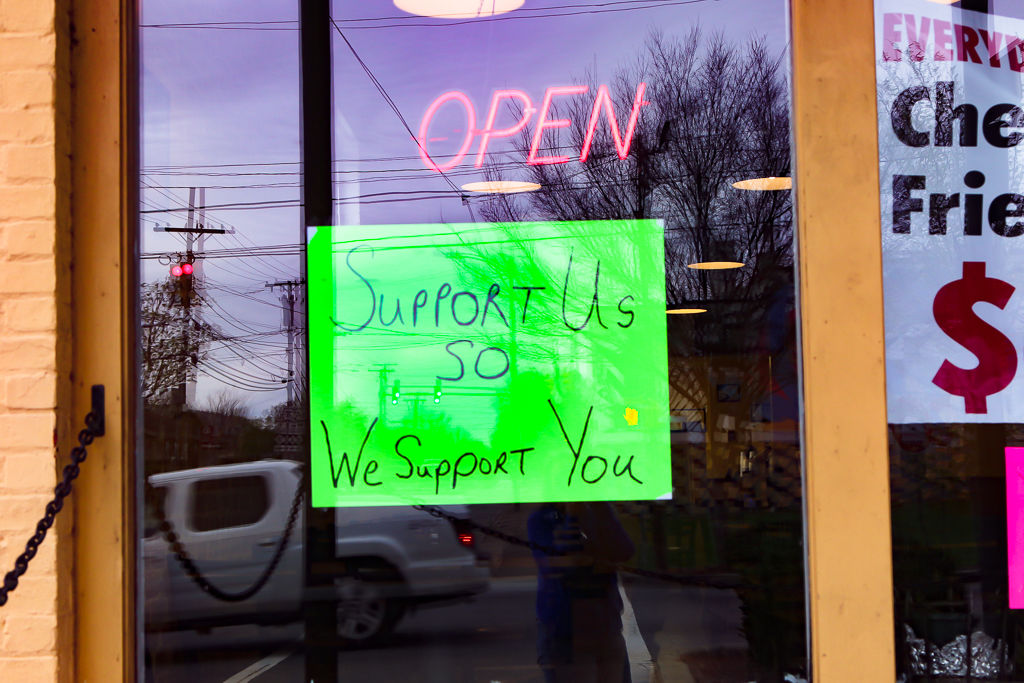 OPEN
Support Us
SO
We Support You
EVERYD
Che
Frie
$